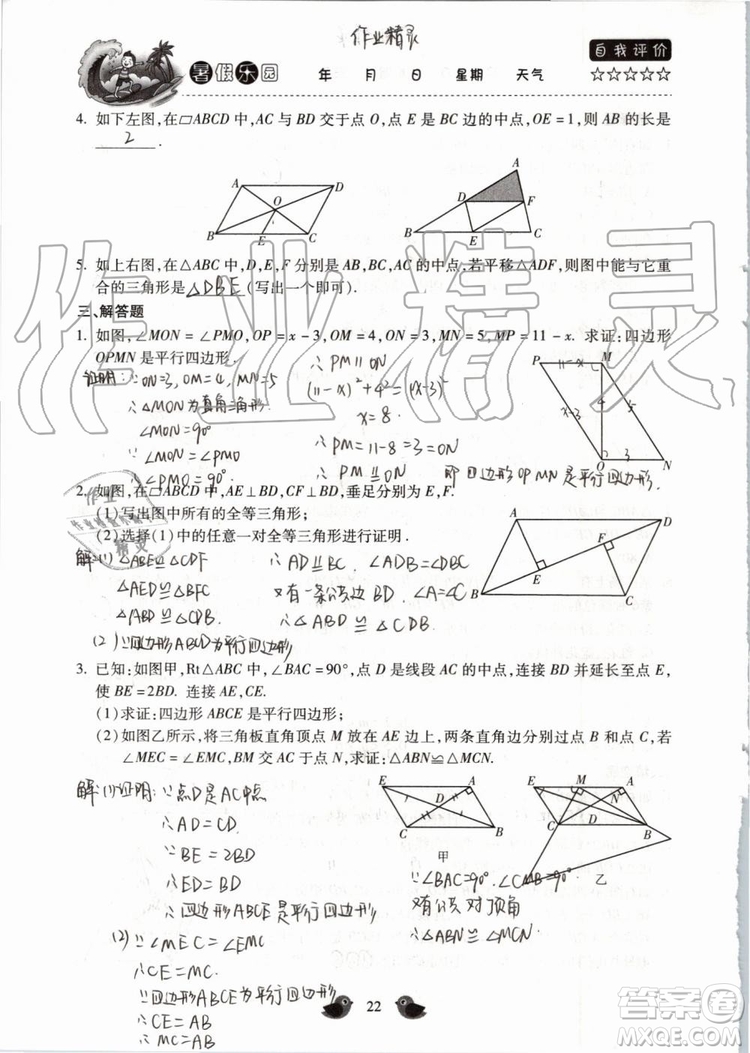 作业精灵
自我评价
暑假乐园 年 月 日 星期 天气 ☆☆☆☆☆
4. 如下左图,在▱ABCD中,AC与BD交于点O,点E是BC边的中点,OE=1,则AB的长是
2 .
A D O B E C
A D F B E C
5. 如上右图,在△ABC中,D、E、F分别是AB、BC、AC的中点,若平移△ADF,则图中能与它重
合的三角形是 △DBE (写出一个即可).
三、解答题
1. 如图,∠MON=∠PMO,OP=x-3,OM=4,ON=3,MN=5,MP=11-x. 求证:四边形
OPMN是平行四边形.
证明:∵ON=3,OM=4,MN=5
∴△MON为直角三角形
∴∠MON=90°
∵∠MON=∠PMO
∴∠PMO=90°
∴PM∥ON
(11-x)²+4²=(x-3)²
x=8.
∴PM=11-8=3=ON
∴PM∥ON 即四边形OPMN是平行四边形.
P 11-x M x-3 4 5 O 3 N
2. 如图,在▱ABCD中,AE⊥BD,CF⊥BD,垂足分别为E、F.
(1)写出图中所有的全等三角形;
(2)选择(1)中的任意一对全等三角形进行证明.
解:(1) △ABE≌△CDF
△AED≌△BFC
△ABD≌△CDB
(2)∵四边形ABCD为平行四边形
∴AD∥BC. ∠ADB=∠DBC
又有一条公共边BD. ∠A=∠C
∴△ABD≌△CDB.
A D F E B C
3. 已知:如图甲,Rt△ABC中,∠BAC=90°,点D是线段AC的中点,连接BD并延长至点E,
使BE=2BD. 连接AE,CE.
(1)求证:四边形ABCE是平行四边形;
(2)如图乙所示,将三角板直角顶点M放在AE边上,两条直角边分别过点B和点C,若
∠MEC=∠EMC,BM交AC于点N,求证:△ABN≌△MCN.
解:(1)证明:∵点D是AC中点
∴AD=CD.
∵BE=2BD
∴ED=BD
∴四边形ABCE是平行四边形
(2) ∵∠MEC=∠EMC
∴CE=MC.
∵四边形ABCE为平行四边形
∴CE=AB
∴MC=AB
E A D C B
甲
E M A N C D B
乙
∵∠BAC=90°,∠CMB=90°
又有公共对顶角
∴△ABN≌△MCN.
22
作业精灵
答案圈
MXQE.COM